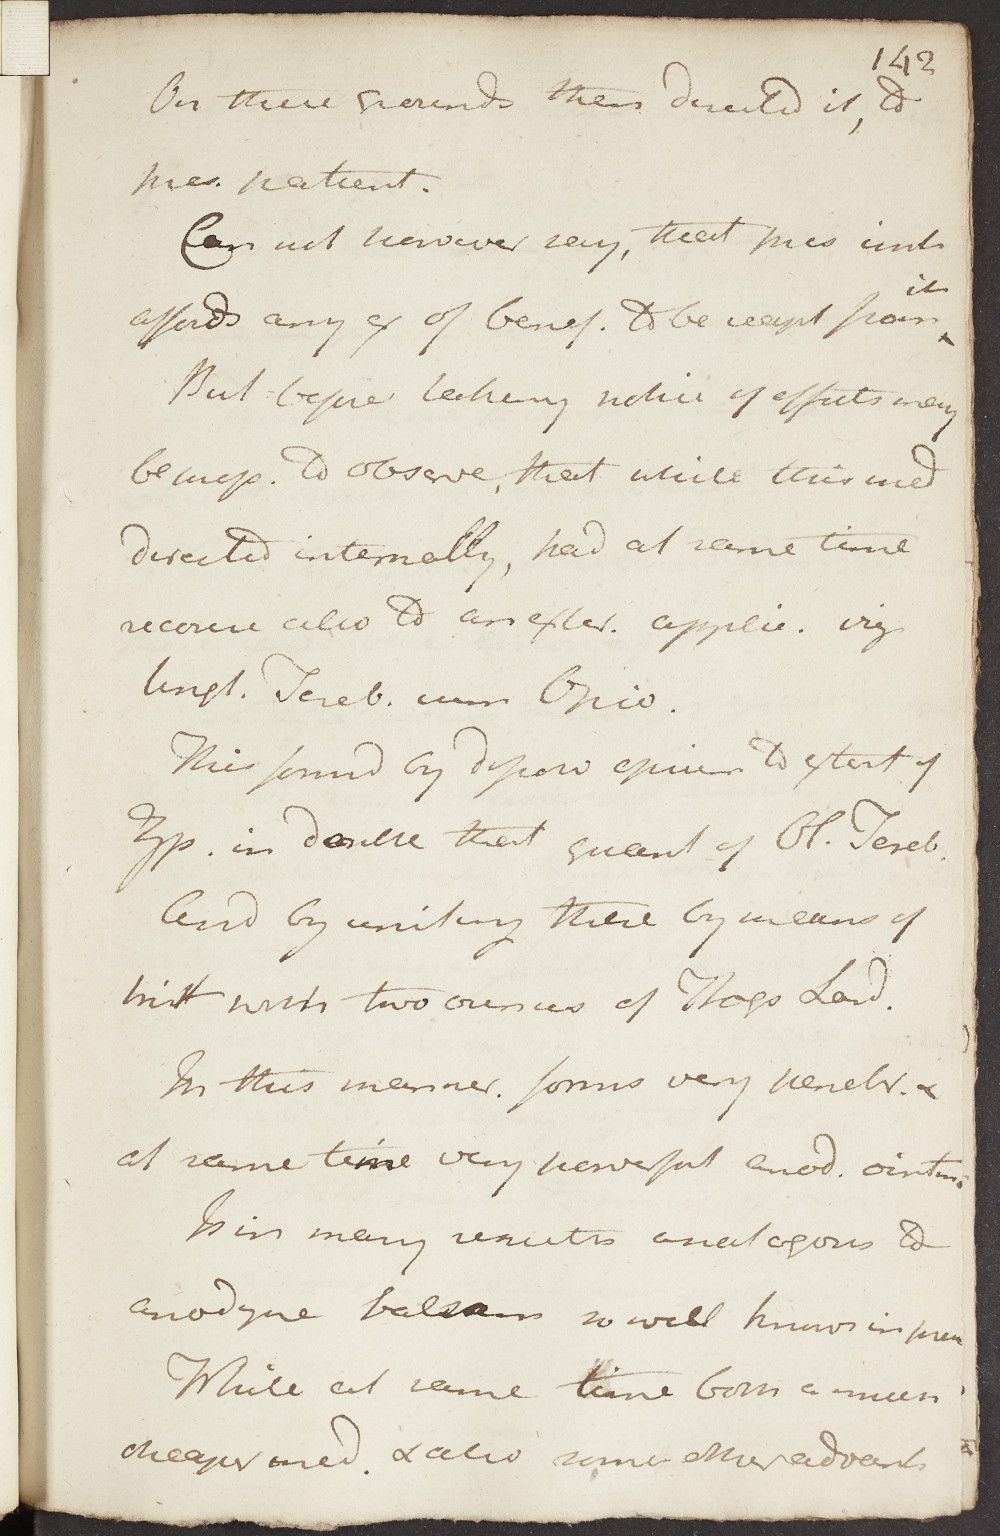 142
On these grounds then directed it, to
pres. patient.
Can not however say, that pres inst
affords any ex of benef. to be reapt from it
But before taking notice of effects may
be uness. to observe, that while this med
directed internally, had at same time
recourse also to an exter. applic. viz
Ungt. Tereb. cum Opio.
This formd by dissolv opium to extent of
ʒss. in double that quant of Ol. Tereb.
And by uniting these by means of
heat with two ounces of Hogs Lard.
In this manner. forms very penetr. &
at same time very powerful anod. ointm
Is in many respects analogous to
anodyne balsam so well known in prac
While at same time both a much
cheaper med. & also some other advant